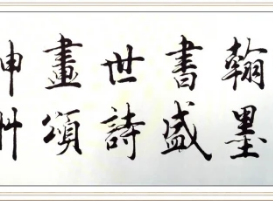 翰墨
書盛
世詩
畫頌
神州